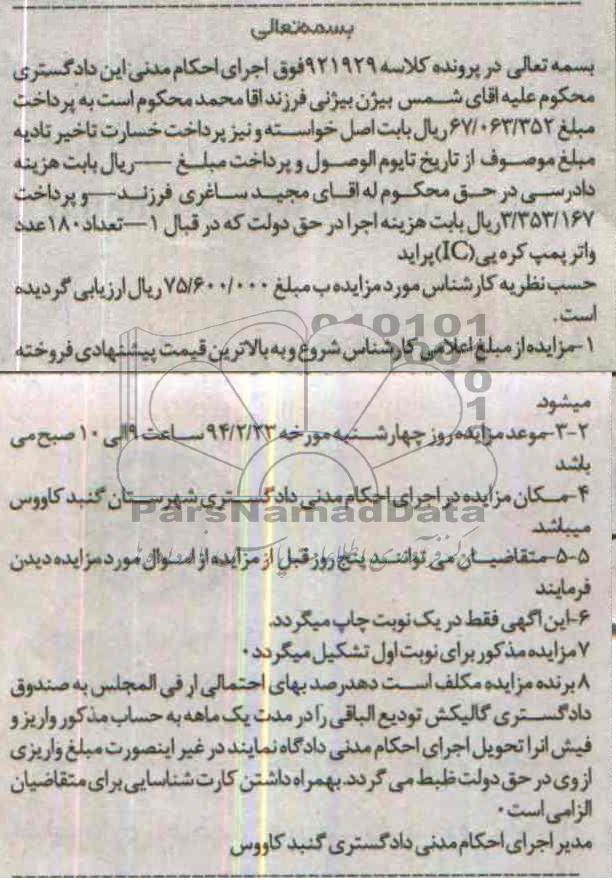 بسمه‌تعالی
بسمه تعالی در پرونده کلاسه ۹۲۱۹۲۹فوق اجرای احکام مدنی این دادگستری
محکوم علیه اقای شمس بیژن بیژنی فرزند اقا محمد محکوم است به پرداخت
مبلغ ۶۷/۰۶۳/۳۵۲ ریال بابت اصل خواسته و نیز پرداخت خسارت تاخیر تادیه
مبلغ موصوف از تاریخ تایوم الوصول و پرداخت مبلغ ----ریال بابت هزینه
دادرسی در حق محکوم له اقای مجید ساغری فرزند---و پرداخت
۳/۳۵۳/۱۶۷ریال بابت هزینه اجرا در حق دولت که در قبال ۱---تعداد۱۸۰عدد
واتر پمپ کره یی(IC)پراید
حسب نظریه کارشناس مورد مزایده ب مبلغ ۷۵/۶۰۰/۰۰۰ ریال ارزیابی گردیده
است.
۱-مزایده از مبلغ اعلامی کارشناس شروع و به بالاترین قیمت پیشنهادی فروخته
میشود.
۳-۲-موعد مزایده روز چهارشنبه مورخه ۹۴/۲/۲۳ ساعت ۹الی ۱۰ صبح می
باشد
۴-مکان مزایده در اجرای احکام مدنی دادگستری شهرستان گنبد کاووس
میباشد.
ParsNamadData
۵-۵-متقاضیان می توانند پنج روز قبل از مزایده از اموال مورد مزایده دیدن
فرمایند
۶-این اگهی فقط در یک نوبت چاپ میگردد.
۷مزایده مذکور برای نوبت اول تشکیل میگردد۰
۸برنده مزایده مکلف است دهدرصد بهای احتمالی ار فی المجلس به صندوق
دادگستری گالیکش تودیع الباقی را در مدت یک ماهه به حساب مذکور واریز و
فیش انرا تحویل اجرای احکام مدنی دادگاه نمایند در غیر اینصورت مبلغ واریزی
از وی در حق دولت ظبط می گردد.بهمراه داشتن کارت شناسایی برای متقاضیان
الزامی است۰
مدیر اجرای احکام مدنی دادگستری گنبد کاووس